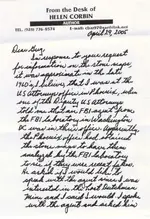 From the Desk of
HELEN CORBIN
AUTHOR
April 29, 2005
Dear Greg,
In response to your request
for information on the stone maps,
it was approximate in the late
1960's I believe, that I was at the
US Attorneys office in Phoenix, when
one of the Deputy US Attorneys
told me that an FBI agent from
the FBI laboratory in Washington
DC was in their office. Apparently,
the Phoenix office had
the stone maps to have them
analyzed at the FBI laboratory
to see if they were
He asked if I would like to
speak with the agent since I was
interested in the Lost Dutchman
Mine and I said I would. I spoke
with the agent and asked him